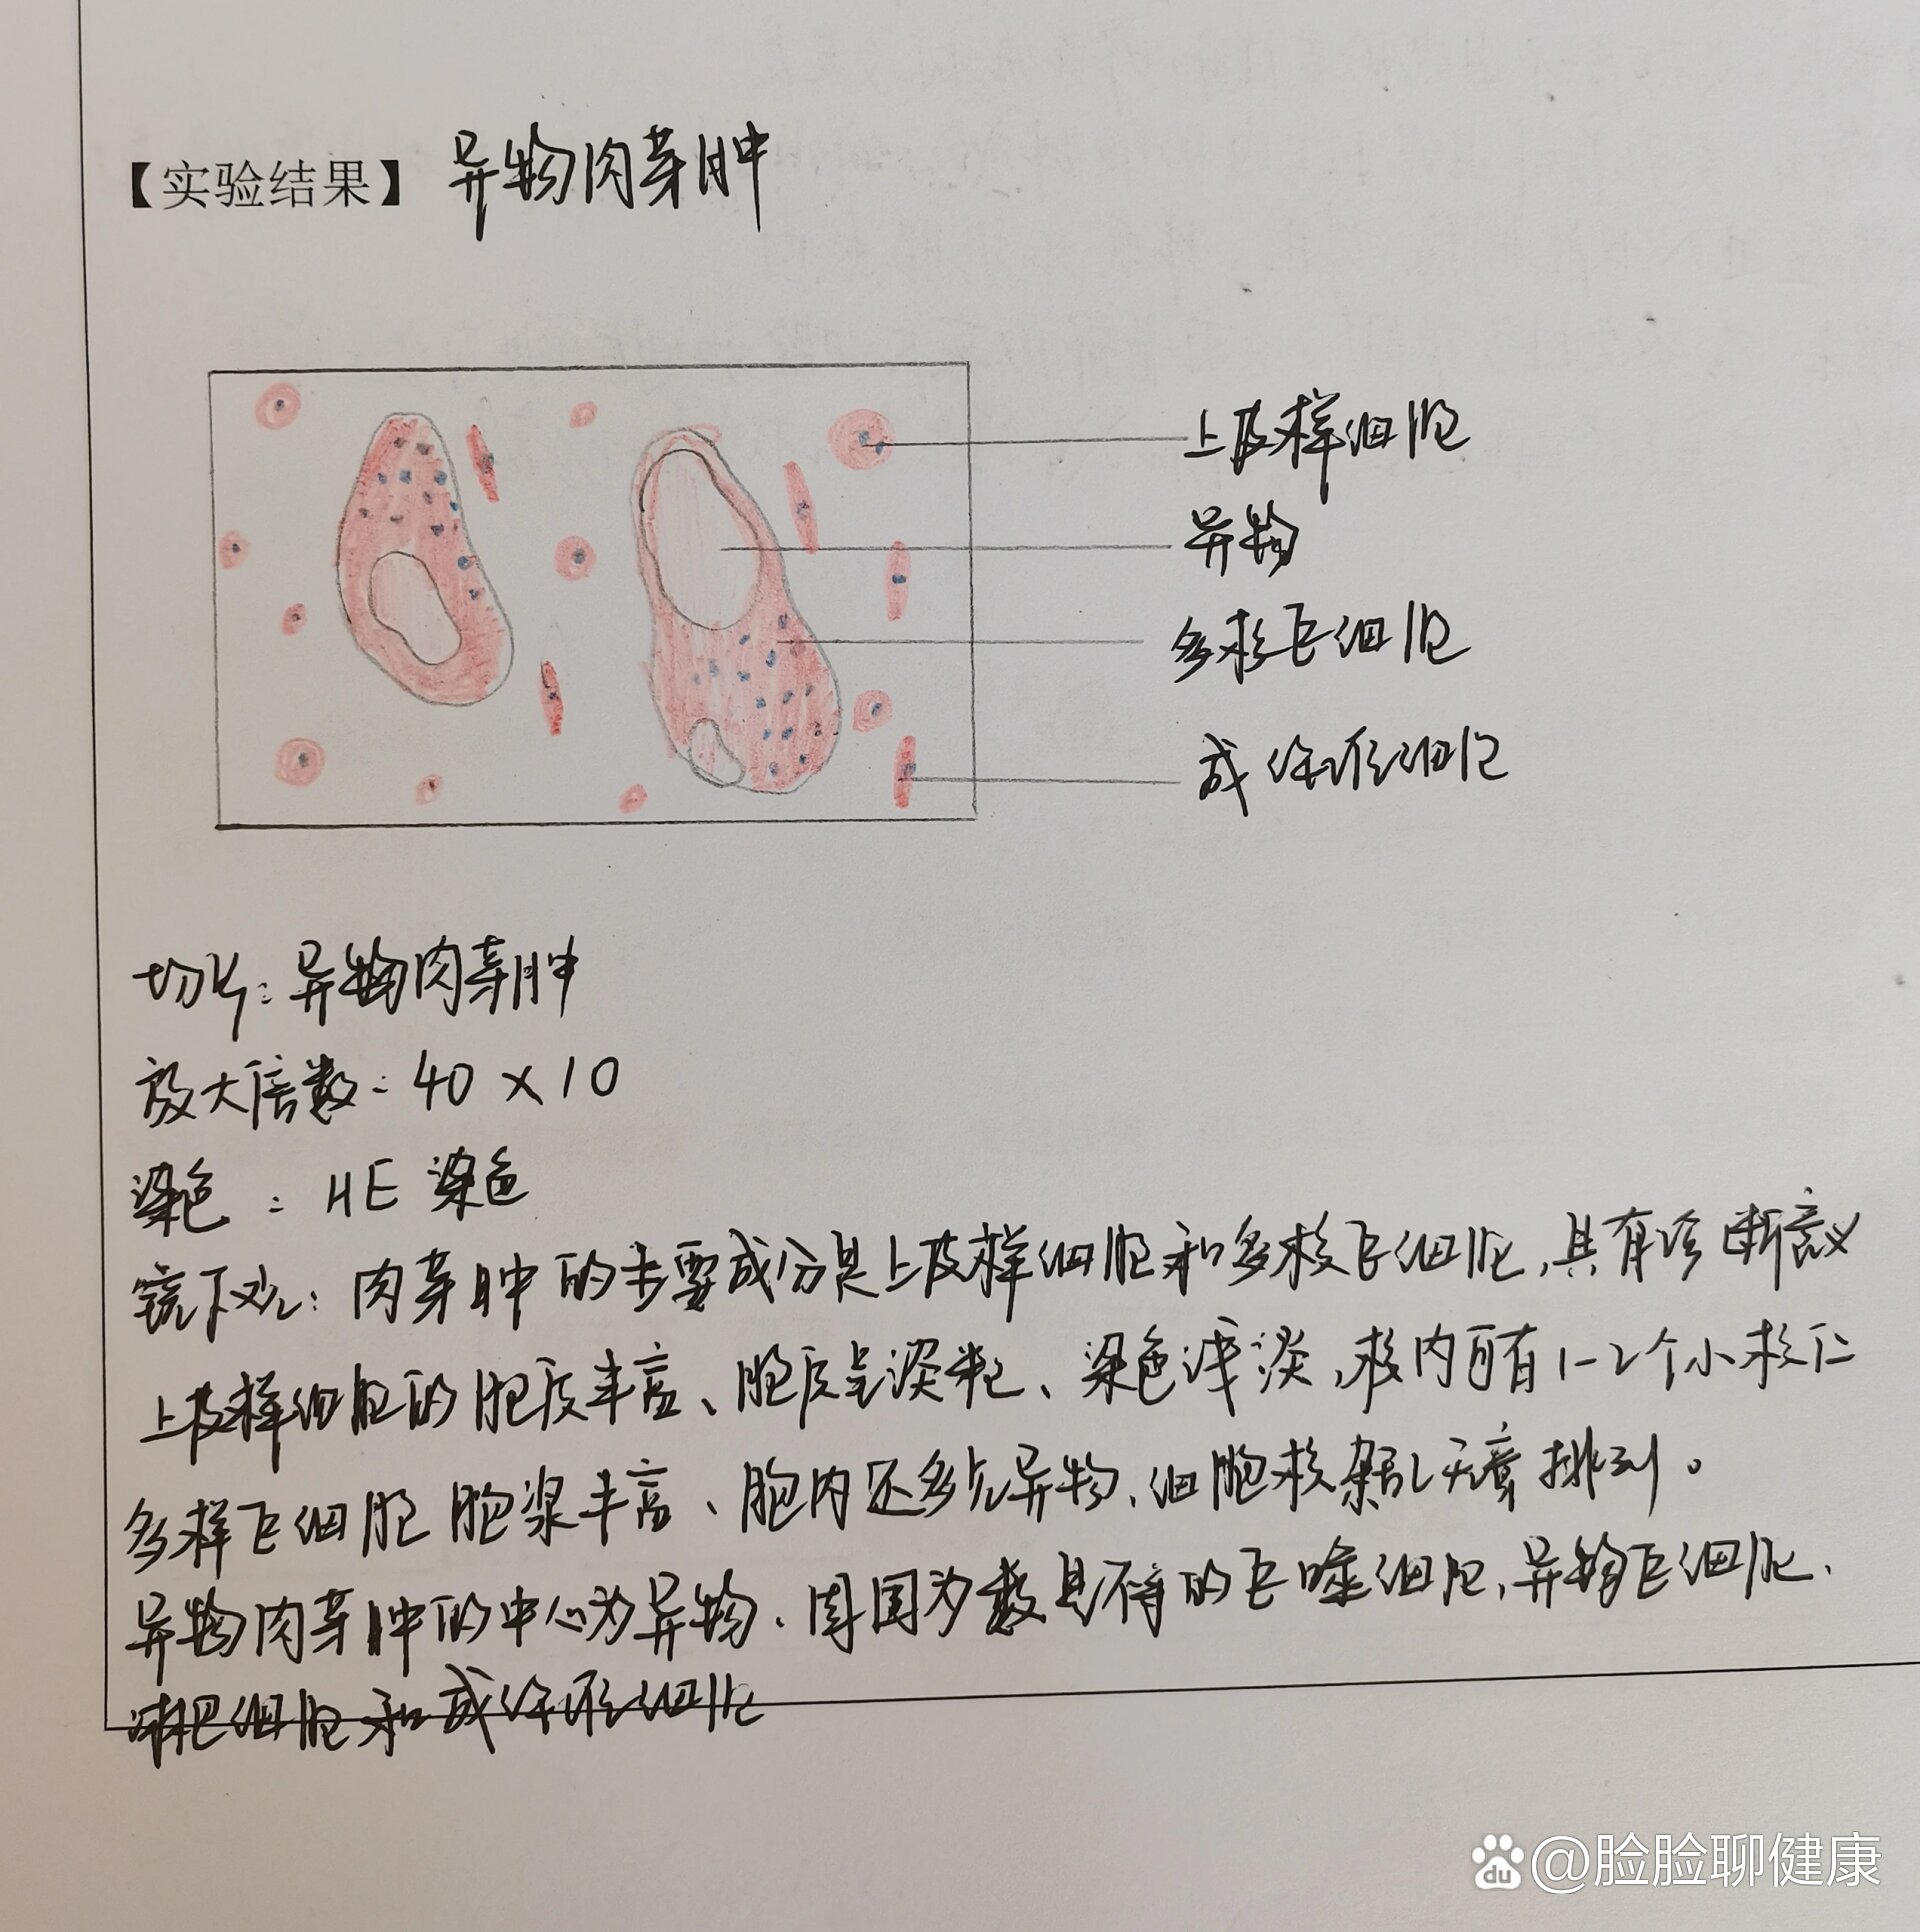 【实验结果】 异物肉芽肿
上皮样细胞
异物
多核巨细胞
成纤维细胞
切片：异物肉芽肿
放大倍数：40×10
染色：HE染色
镜下观：肉芽肿的主要成分是上皮样细胞和多核巨细胞，具有诊断意义
上皮样细胞的胞质丰富、胞质呈淡粉、染色浅淡，核内可有1-2个小核仁
多样巨细胞胞浆丰富、胞内还多见异物，细胞核杂乱无章排列。
异物肉芽肿的中心为异物、周围为数量不等的巨噬细胞，异物巨细胞、
淋巴细胞和成纤维细胞
du @脸脸聊健康